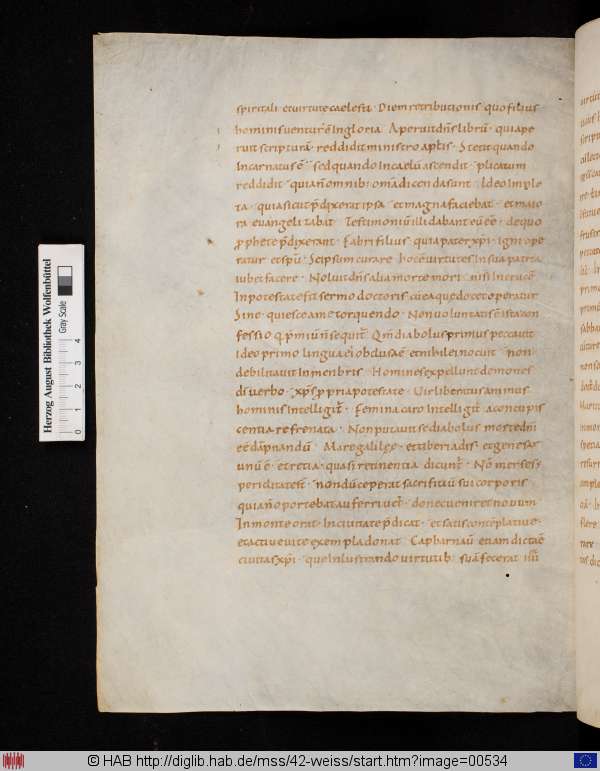 spiritali et virtute caelesti · Diem retributionis quo filius
hominis uentur÷ In gloria · Aperuit dn̄s librū · qui ape
ruit scripturā reddidit ministro apl̄is · Stetit quando
Incarnatus ē sed quando In caelū ascendit plicatum
reddidit quia n̄ omnib; oma dicenda sunt · Ideo Imple
ta · quia sicut p̄dixerat ipsa et magna faciebat · et maio
ra euangelitabat Testimoniū illi dabant · de quo
p̱phete p̄dixerant · Fabri filius quia pater xp̄i · igni ope
ratur et sp̄u · Se ipsum curare hoc ē virtutes In sua patria
iubet facere · Noluit dn̄s alia morte mori nisi In cruce
In potestate fit sermo doctoris cū ea que docet operatur
Sine quiesce a me torquendo · Non voluntatis ē ista con
fessio q̄ p̄miū n̄ sequit̄ Qm̄ diabolus primus peccauit
ideo primo lingua ei obclusa ē et nihil ei nocuit non
debilitauit In menbris · Homines expellunt demones
di verbo · xp̄s p̱pria potestate · Vir liberatus animus
hominis Intelligit̄ · Femina caro Intelligit̄ a concupis
centia refrenata · Non putauit se diabolus mos tedn̄i
eē dāpnandū · Mare galileę et tiberiadis et genesar
unū ē et retia quasi retinentia dicunt̄ · Nō merses
periditatest · nondū ceperat sacrifitiū sui corporis
quia n̄ oportebat auferri uet̄ · donec ueniret nouum
In monte orat · In ciuitate p̄dicat et satis contēplatiue
et actiue uite exempla donat Capharnaū etiam dicta ē
ciuitas xp̄i · que Inlustrando virtutib; suā fecerat
Herzog August Bibliothek Wolfenbüttel
Gray Scale
0 1 2 3 4
© HAB http://diglib.hab.de/mss/42-weiss/start.htm?image=00534